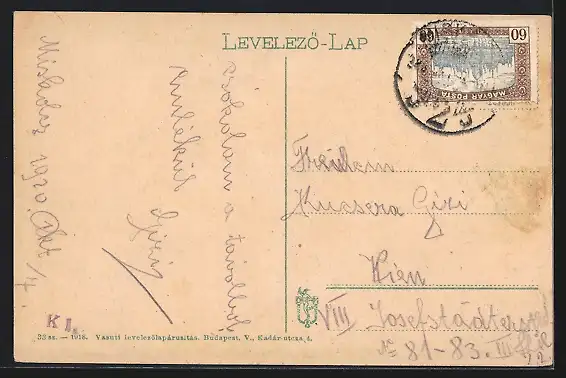 LEVELEZŐ-LAP
60 60
MAGYAR POSTA
Miskolc 1920. Okt 4.
csókolom a távolból
emlékül
Fräulein
Kucsera Gizi
Wien
VIII Josefstädter
No 81-83. III
K I.
32 sz. — 1918. Vasuti levelezőlapárusitás. Budapest, V., Kádár-utcza 4.